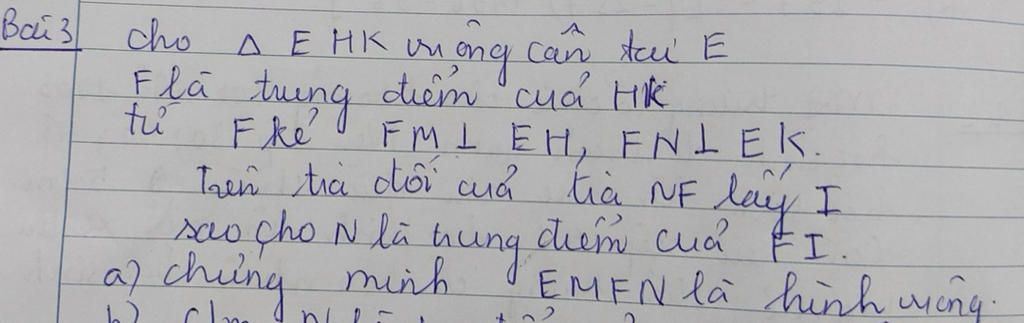 Bài 3 Cho Δ EHK vuông cân tại E
F là trung điểm của HK
từ F kẻ FM ⊥ EH, FN ⊥ EK.
Trên tia đối của tia NF lấy I
sao cho N là trung điểm của FI.
a) chứng minh EMFN là hình vuông.